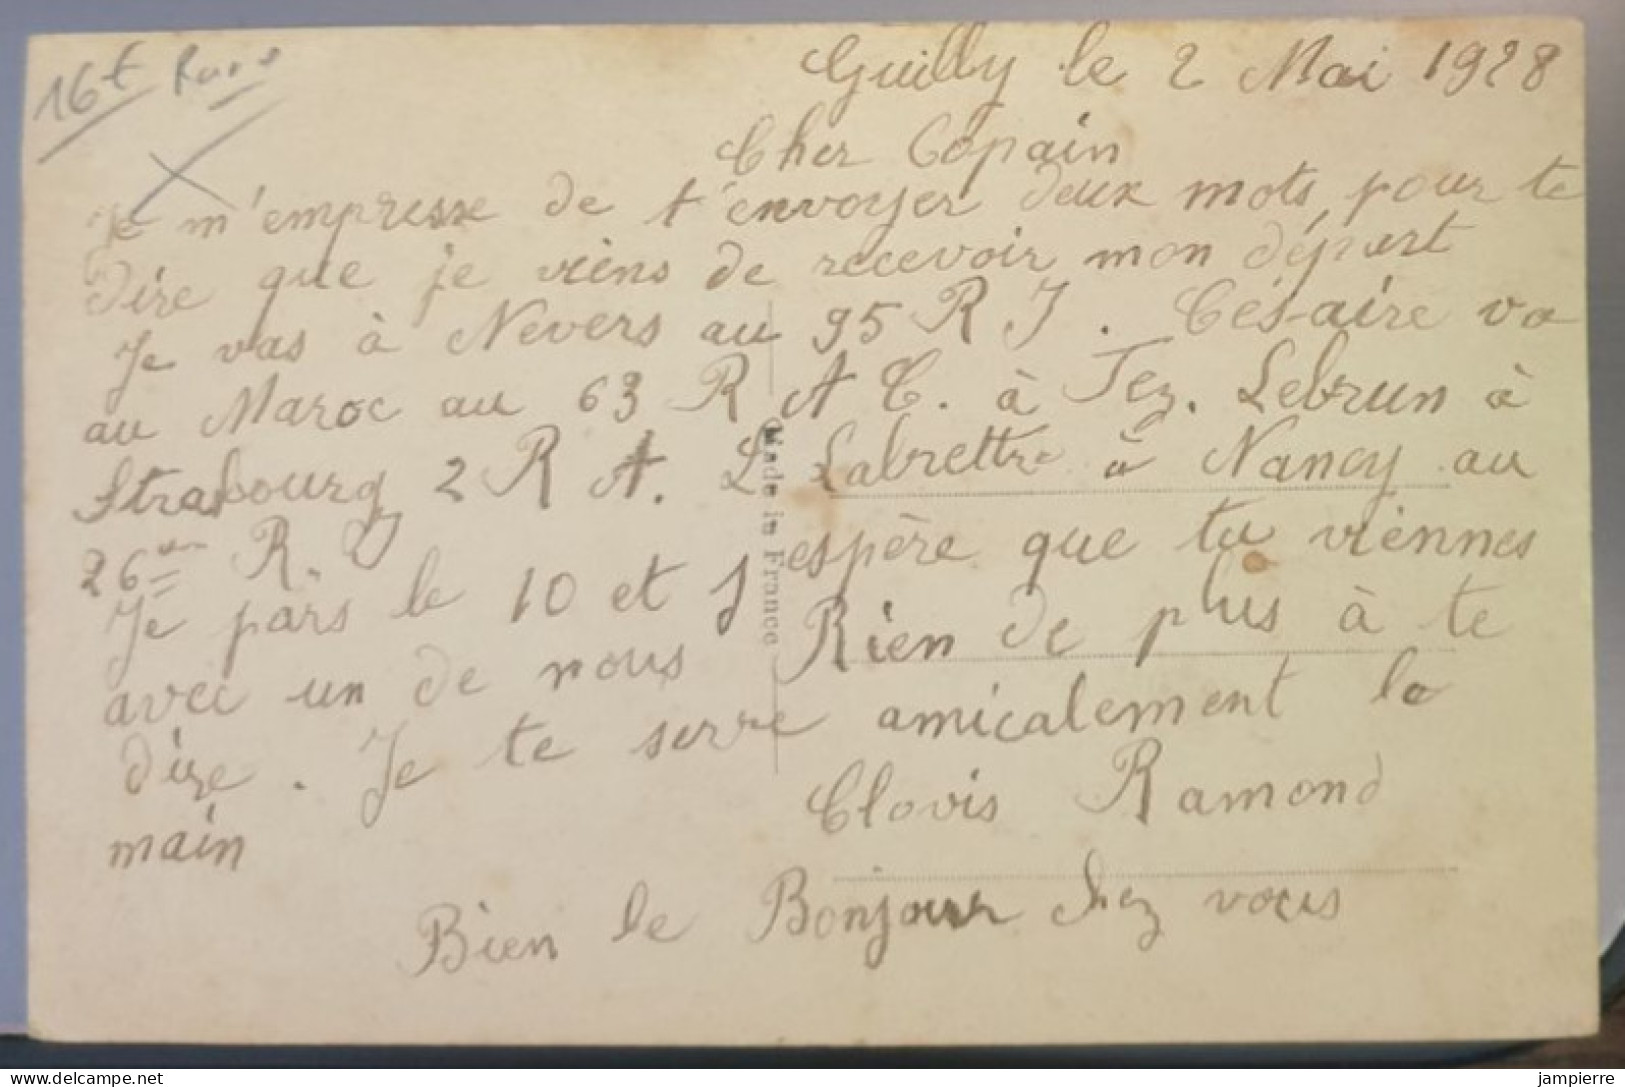 16€ Rare
Guilly le 2 Mai 1928
Cher Copain
Je m'empresse de t'envoyer deux mots pour te
dire que je viens de recevoir mon départ
Je vas à Nevers au 95 R I. Césaire va
au Maroc au 63 R A C. à Fez. Lebrun à
Strasbourg 2 R A. L Labrettre à Nancy au
26em R. I
Je pars le 10 et J'espère que tu viennes
avec un de nous Rien de plus à te
dire. Je te serre amicalement la
main
Clovis Ramond
Bien le Bonjour chez vous
Made in France
delcampe.net
jampierre